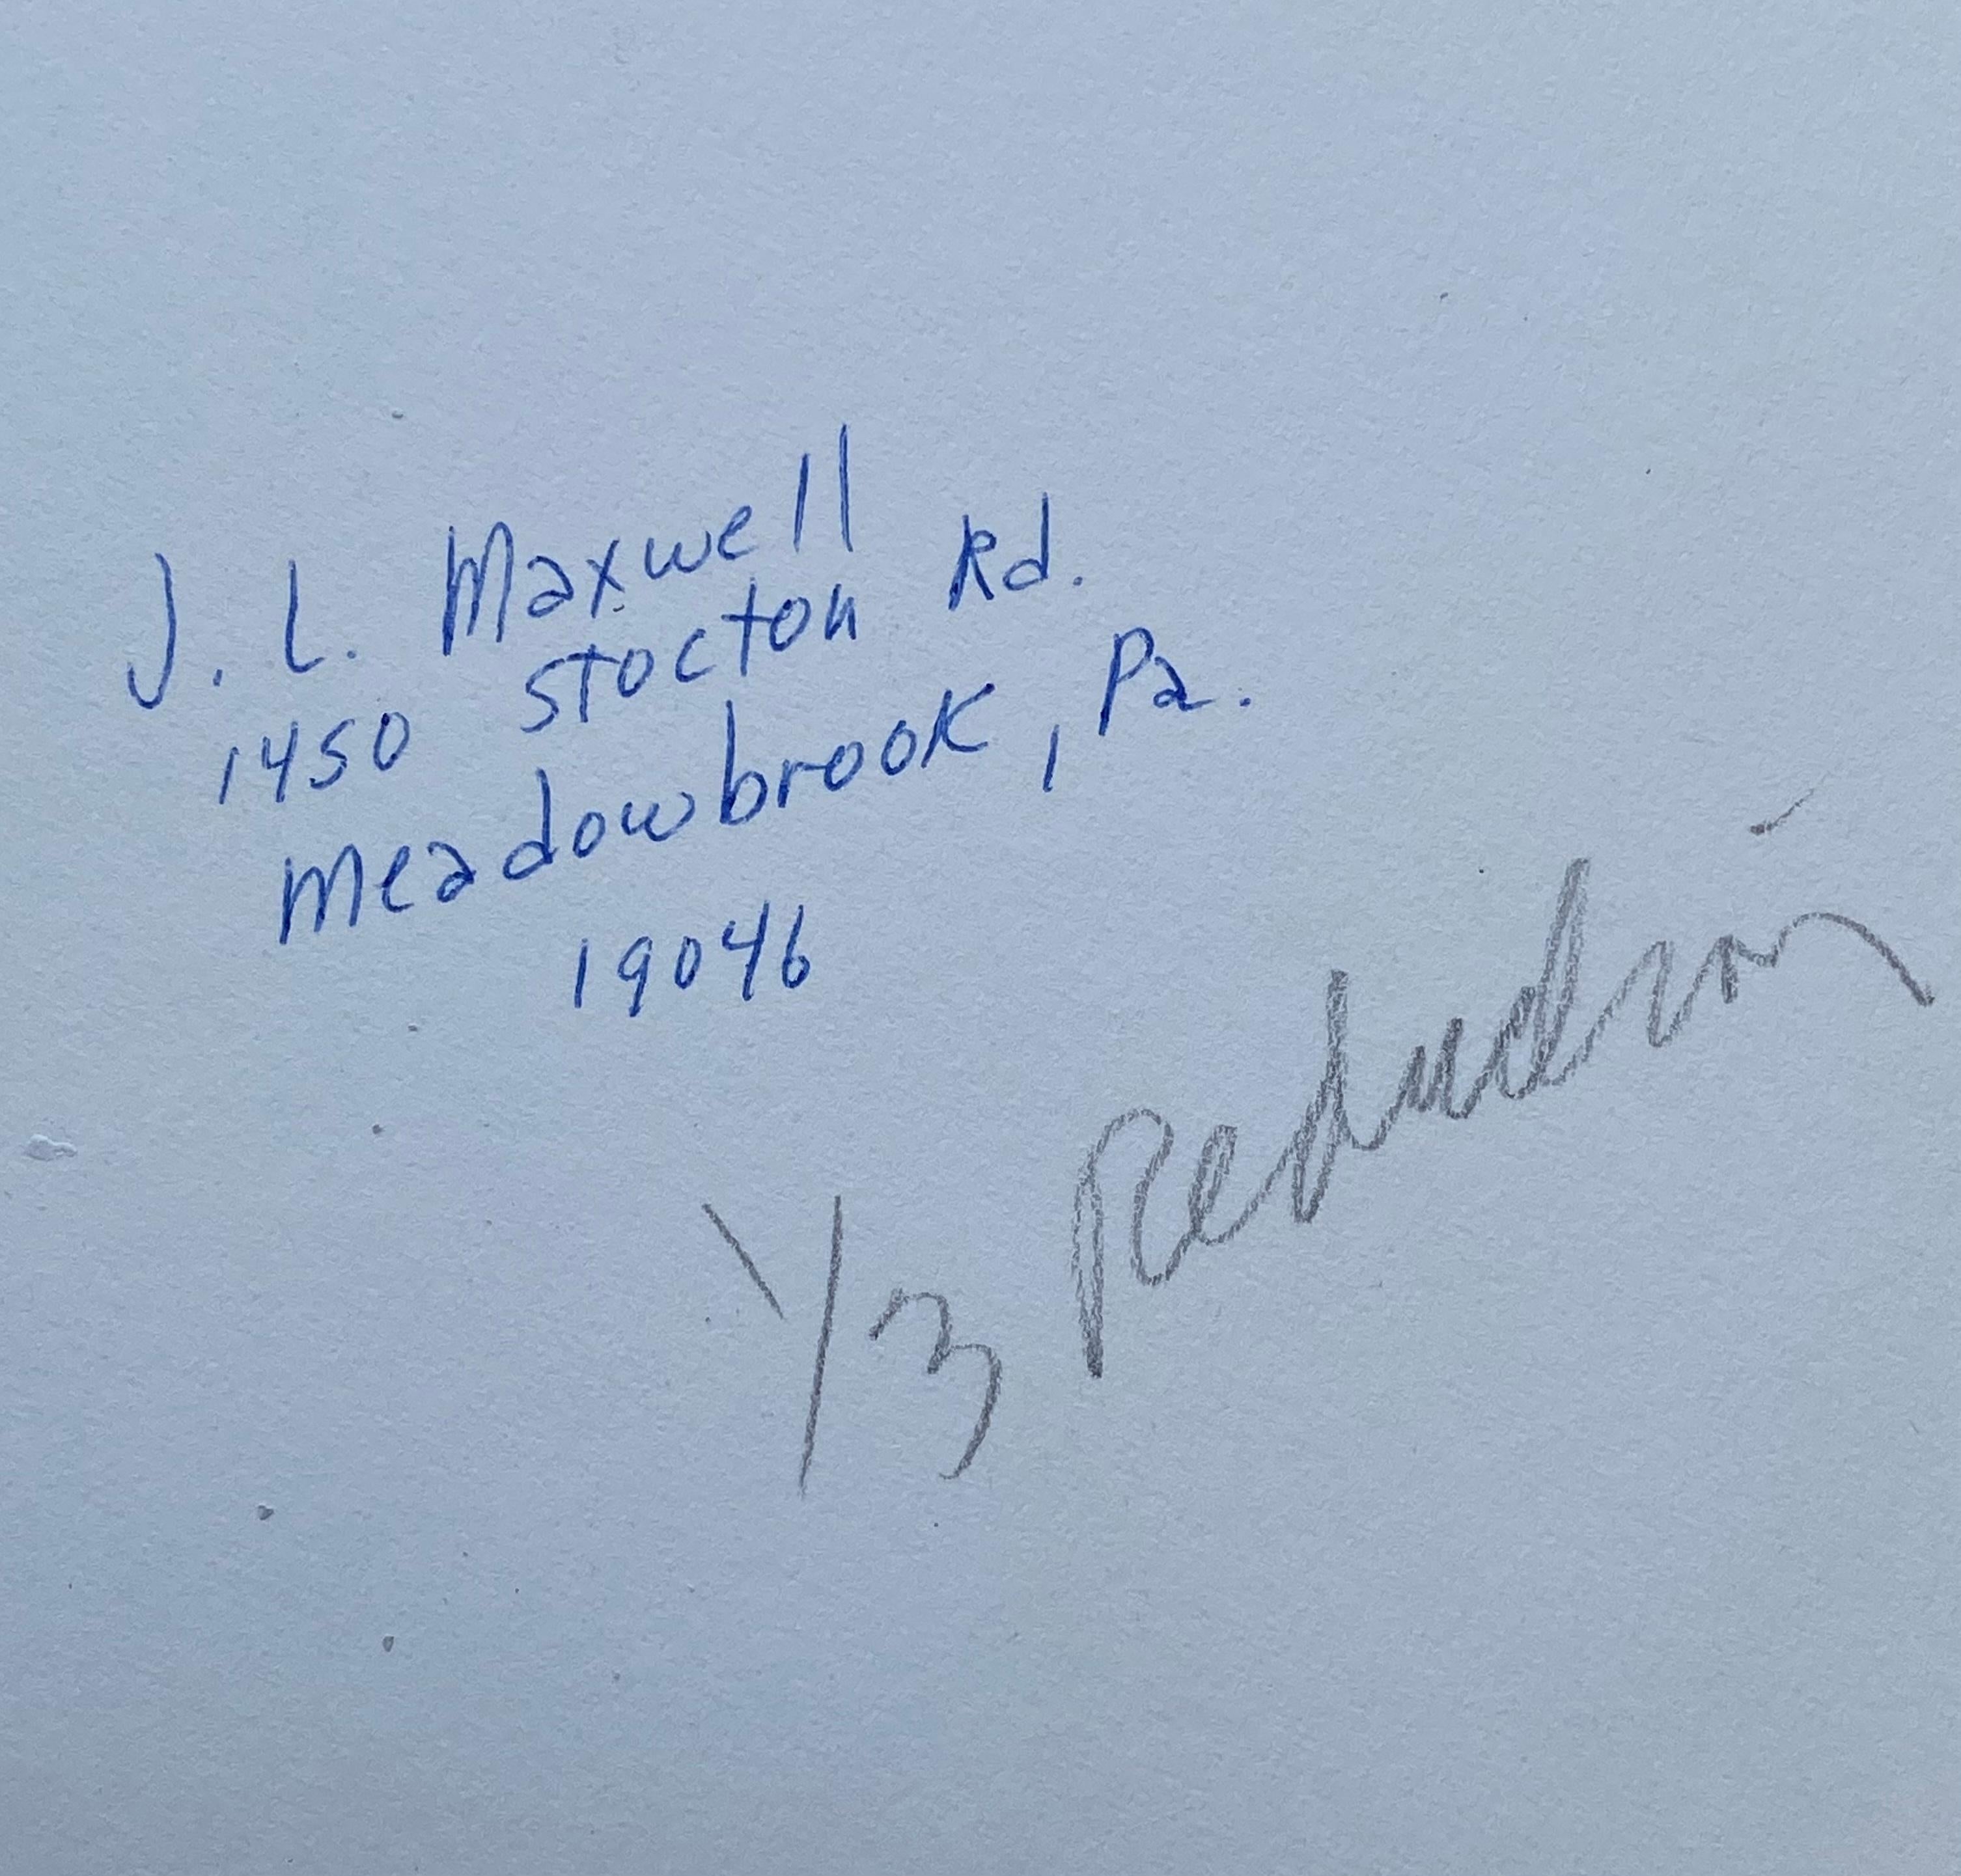 J. L. Maxwell
1450 Stocton Rd.
Meadowbrook, Pa.
19046
1/3 Reduction